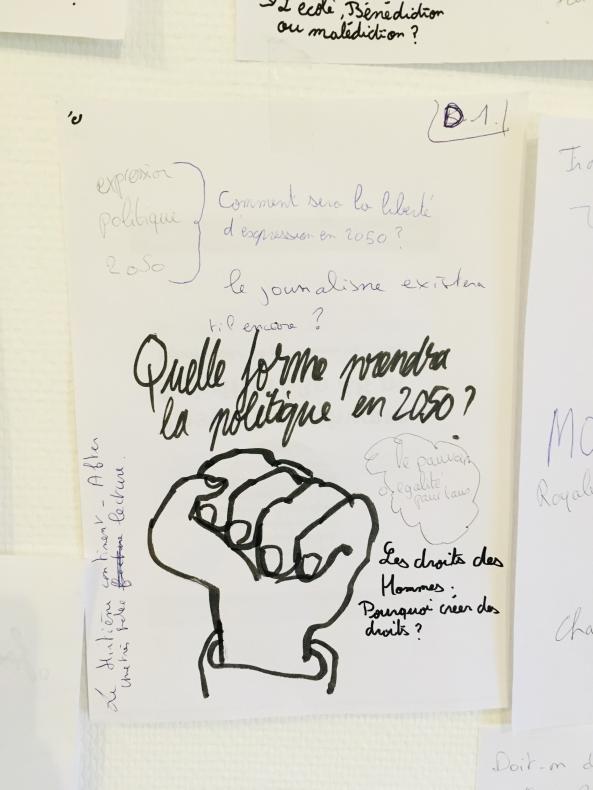 L'école, Bénédiction
ou malédiction ?
D.1.
expression
politique
2050
Comment sera la liberté
d'expression en 2050 ?
le journalisme existera
t'il encore ?
Quelle forme prendra
la politique en 2050 ?
le pouvoir
d'égalité
pour tous
Les droits des
Hommes :
Pourquoi créer des
droits ?
Le Huitième continent - After
lecture.
MO
Royal
Cha
Doit-on d